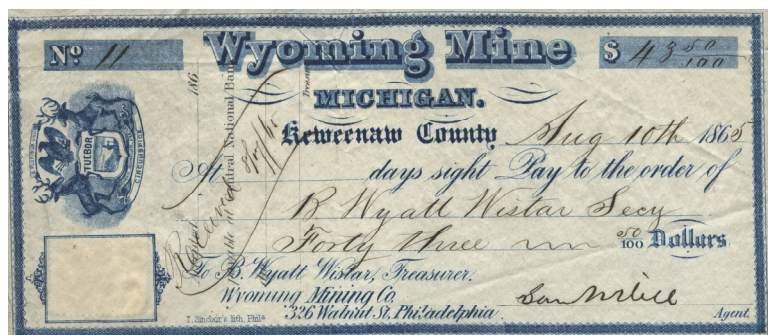 No 11 Wyoming Mine $ 43 50/100
MICHIGAN.
Keweenaw County Aug 10th 1865
At days sight Pay to the order of
R Wyatt Wistar Secy
Forty three 50/100 Dollars
To B. Wyatt Wistar, Treasurer.
Wyoming Mining Co.
326 Walnut St, Philadelphia. Agent.
T. Sinclair's lith, Phila
TUEBOR
186